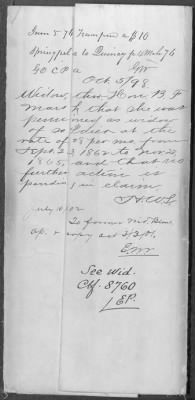 Jan 5 76 Transfrd a $10
Springf'd to Quincy Mch 76
GO CPa
Oct. 5/98.
Widow, thro Hon. B F
Marsh that she was
pensioned as widow
of soldier at the
rate of $8 per mo. from
Sept. 23, 1862 to Nov.
1865, and that no
further action is
pending in claim.
July 10/02
To former Mid. Div.
Op.
See Wid.
Ctf. 8760
EP.